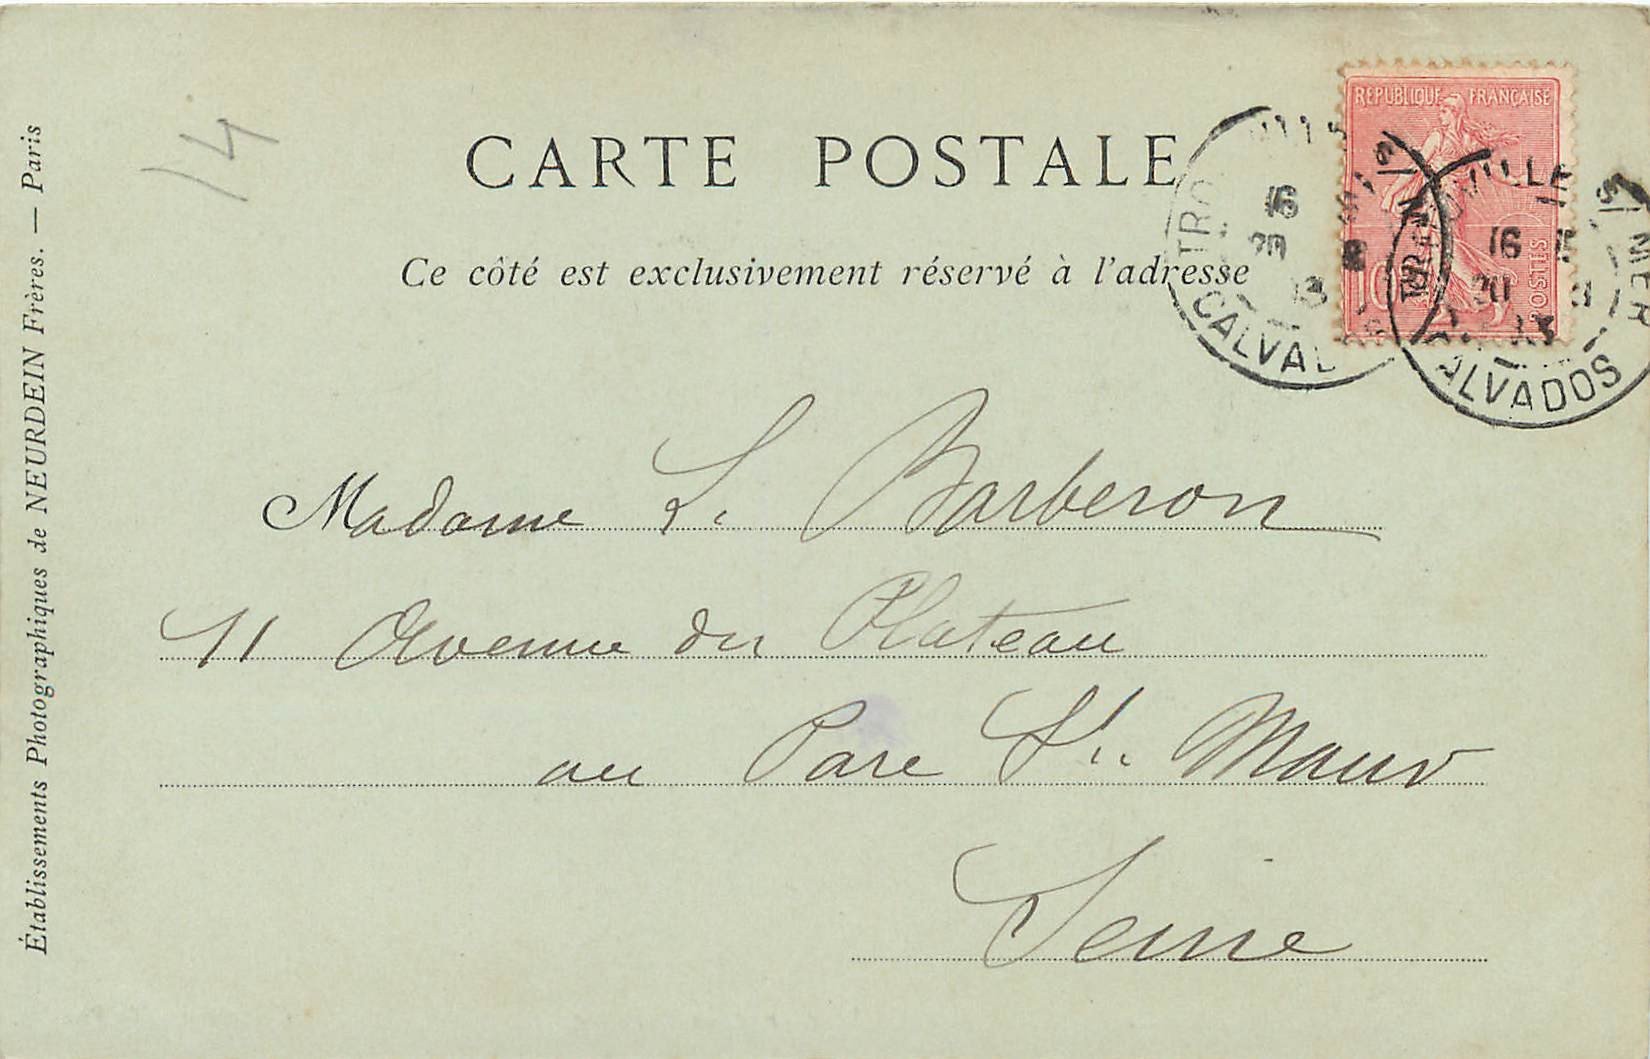 CARTE POSTALE
Ce côté est exclusivement réservé à l'adresse
RÉPUBLIQUE FRANÇAISE
POSTES
10
16
20
CALVADOS
TROUVILLE S MER
16
20
CALVADOS
14
Madame L. Barberon
11 Avenue du Plateau
au Parc St. Maur
Seine
Établissements Photographiques de NEURDEIN Frères. — Paris